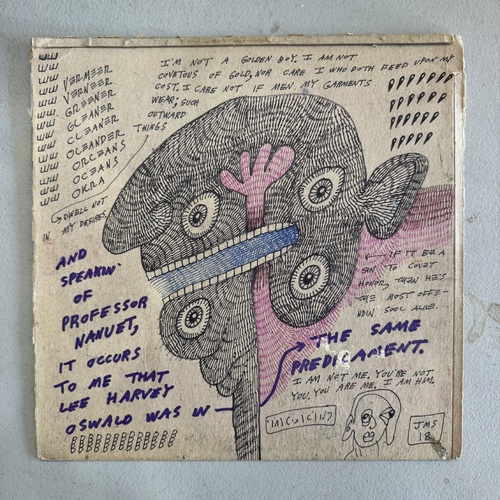 I'M NOT A GOLDEN BOY. I AM NOT
COVETOUS OF GOLD, NOR CARE I WHO DOTH FEED UPON MY
COST. I CARE NOT IF MEN MY GARMENTS
WEAR; SUCH
OUTWARD
THINGS
VERMEER
VERNEER
GREENER
GLEANER
CLEANER
OLEANDER
ORLEANS
OCEANS
OKRA
DWELL NOT
IN MY DESIRES.
AND
SPEAKIN'
OF
PROFESSOR
NANUET,
IT OCCURS
TO ME THAT
LEE HARVEY
OSWALD WAS IN
THE SAME
PREDICAMENT.
IF IT BE A
SIN TO COVET
HONOR, THEN HE'S
THE MOST OFFE-
NDIN SOUL ALIVE.
I AM NOT ME. YOU'RE NOT
YOU. YOU ARE ME. I AM HIM.
JMS
18